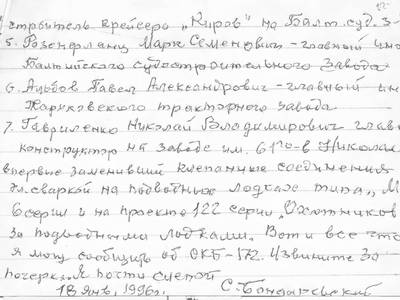 строитель крейсера „Киров" на Балт. суд. з-
5. Розенфланц Марк Семенович - главный инж
Балтийского судостроительного завода
6. Альбов Павел Александрович - главный инж
Харьковского тракторного завода
7. Гавриленко Николай Владимирович главн
конструктор на заводе им. 61го-в Николае
впервые заменивший клепанные соединения
эл. сваркой на подводных лодках типа „М
6 серии и на проекте 122 серии „Охотников
за подводными лодками. Вот и все что
я могу сообщить об ОКБ-172. Извините за
почерк. Я почти слепой
18 янв. 1996г. С. Бондаревский